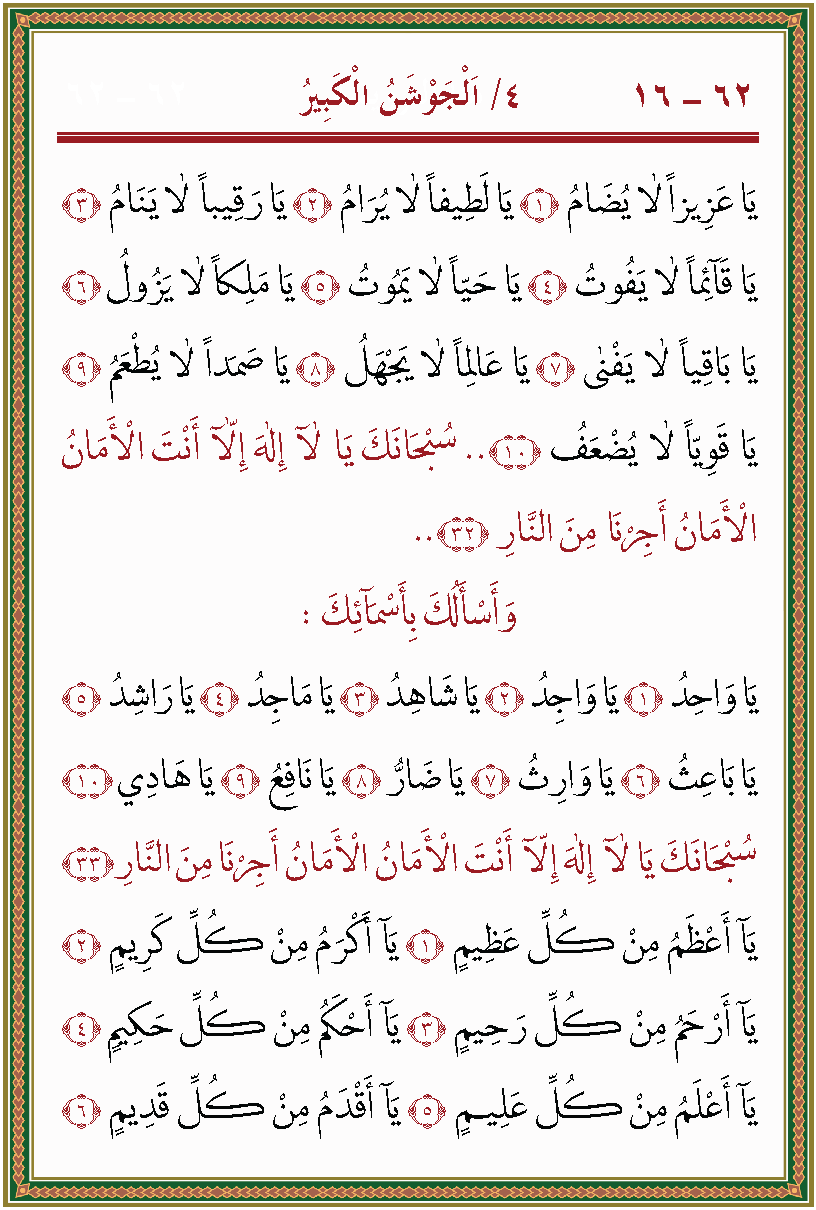 ٦٢ – ١٦ ٤/ اَلْجَوْشَنُ الْكَبِيرُ ٦٢ – ٦٢
يَا عَزِيزاً لاٰ يُضَامُ ﴿١﴾ يَا لَطِيفاً لاٰ يُرَامُ ﴿٢﴾ يَا رَقِيباً لاٰ يَنَامُ ﴿٣﴾
يَا قَآئِماً لاٰ يَفُوتُ ﴿٤﴾ يَا حَيّاً لاٰ يَمُوتُ ﴿٥﴾ يَا مَلِكاً لاٰ يَزُولُ ﴿٦﴾
يَا بَاقِياً لاٰ يَفْنٰى ﴿٧﴾ يَا عَالِماً لاٰ يَجْهَلُ ﴿٨﴾ يَا صَمَداً لاٰ يُطْعَمُ ﴿٩﴾
يَا قَوِيّاً لاٰ يُضْعَفُ ﴿١٠﴾.. سُبْحَانَكَ يَا لآ إِلٰهَ إِلّآ أَنْتَ الْأَمَانُ
الْأَمَانُ أَجِرْنَا مِنَ النَّارِ ﴿٣٢﴾..
وَأَسْأَلُكَ بِأَسْمَآئِكَ :
يَا وَاحِدُ ﴿١﴾ يَا وَاجِدُ ﴿٢﴾ يَا شَاهِدُ ﴿٣﴾ يَا مَاجِدُ ﴿٤﴾ يَا رَاشِدُ ﴿٥﴾
يَا بَاعِثُ ﴿٦﴾ يَا وَارِثُ ﴿٧﴾ يَا ضَارُّ ﴿٨﴾ يَا نَافِعُ ﴿٩﴾ يَا هَادِي ﴿١٠﴾
سُبْحَانَكَ يَا لآ إِلٰهَ إِلّآ أَنْتَ الْأَمَانُ الْأَمَانُ أَجِرْنَا مِنَ النَّارِ ﴿٣٣﴾
يَآ أَعْظَمُ مِنْ كُلِّ عَظِيمٍ ﴿١﴾ يَآ أَكْرَمُ مِنْ كُلِّ كَرِيمٍ ﴿٢﴾
يَآ أَرْحَمُ مِنْ كُلِّ رَحِيمٍ ﴿٣﴾ يَآ أَحْكَمُ مِنْ كُلِّ حَكِيمٍ ﴿٤﴾
يَآ أَعْلَمُ مِنْ كُلِّ عَلِيمٍ ﴿٥﴾ يَآ أَقْدَمُ مِنْ كُلِّ قَدِيمٍ ﴿٦﴾